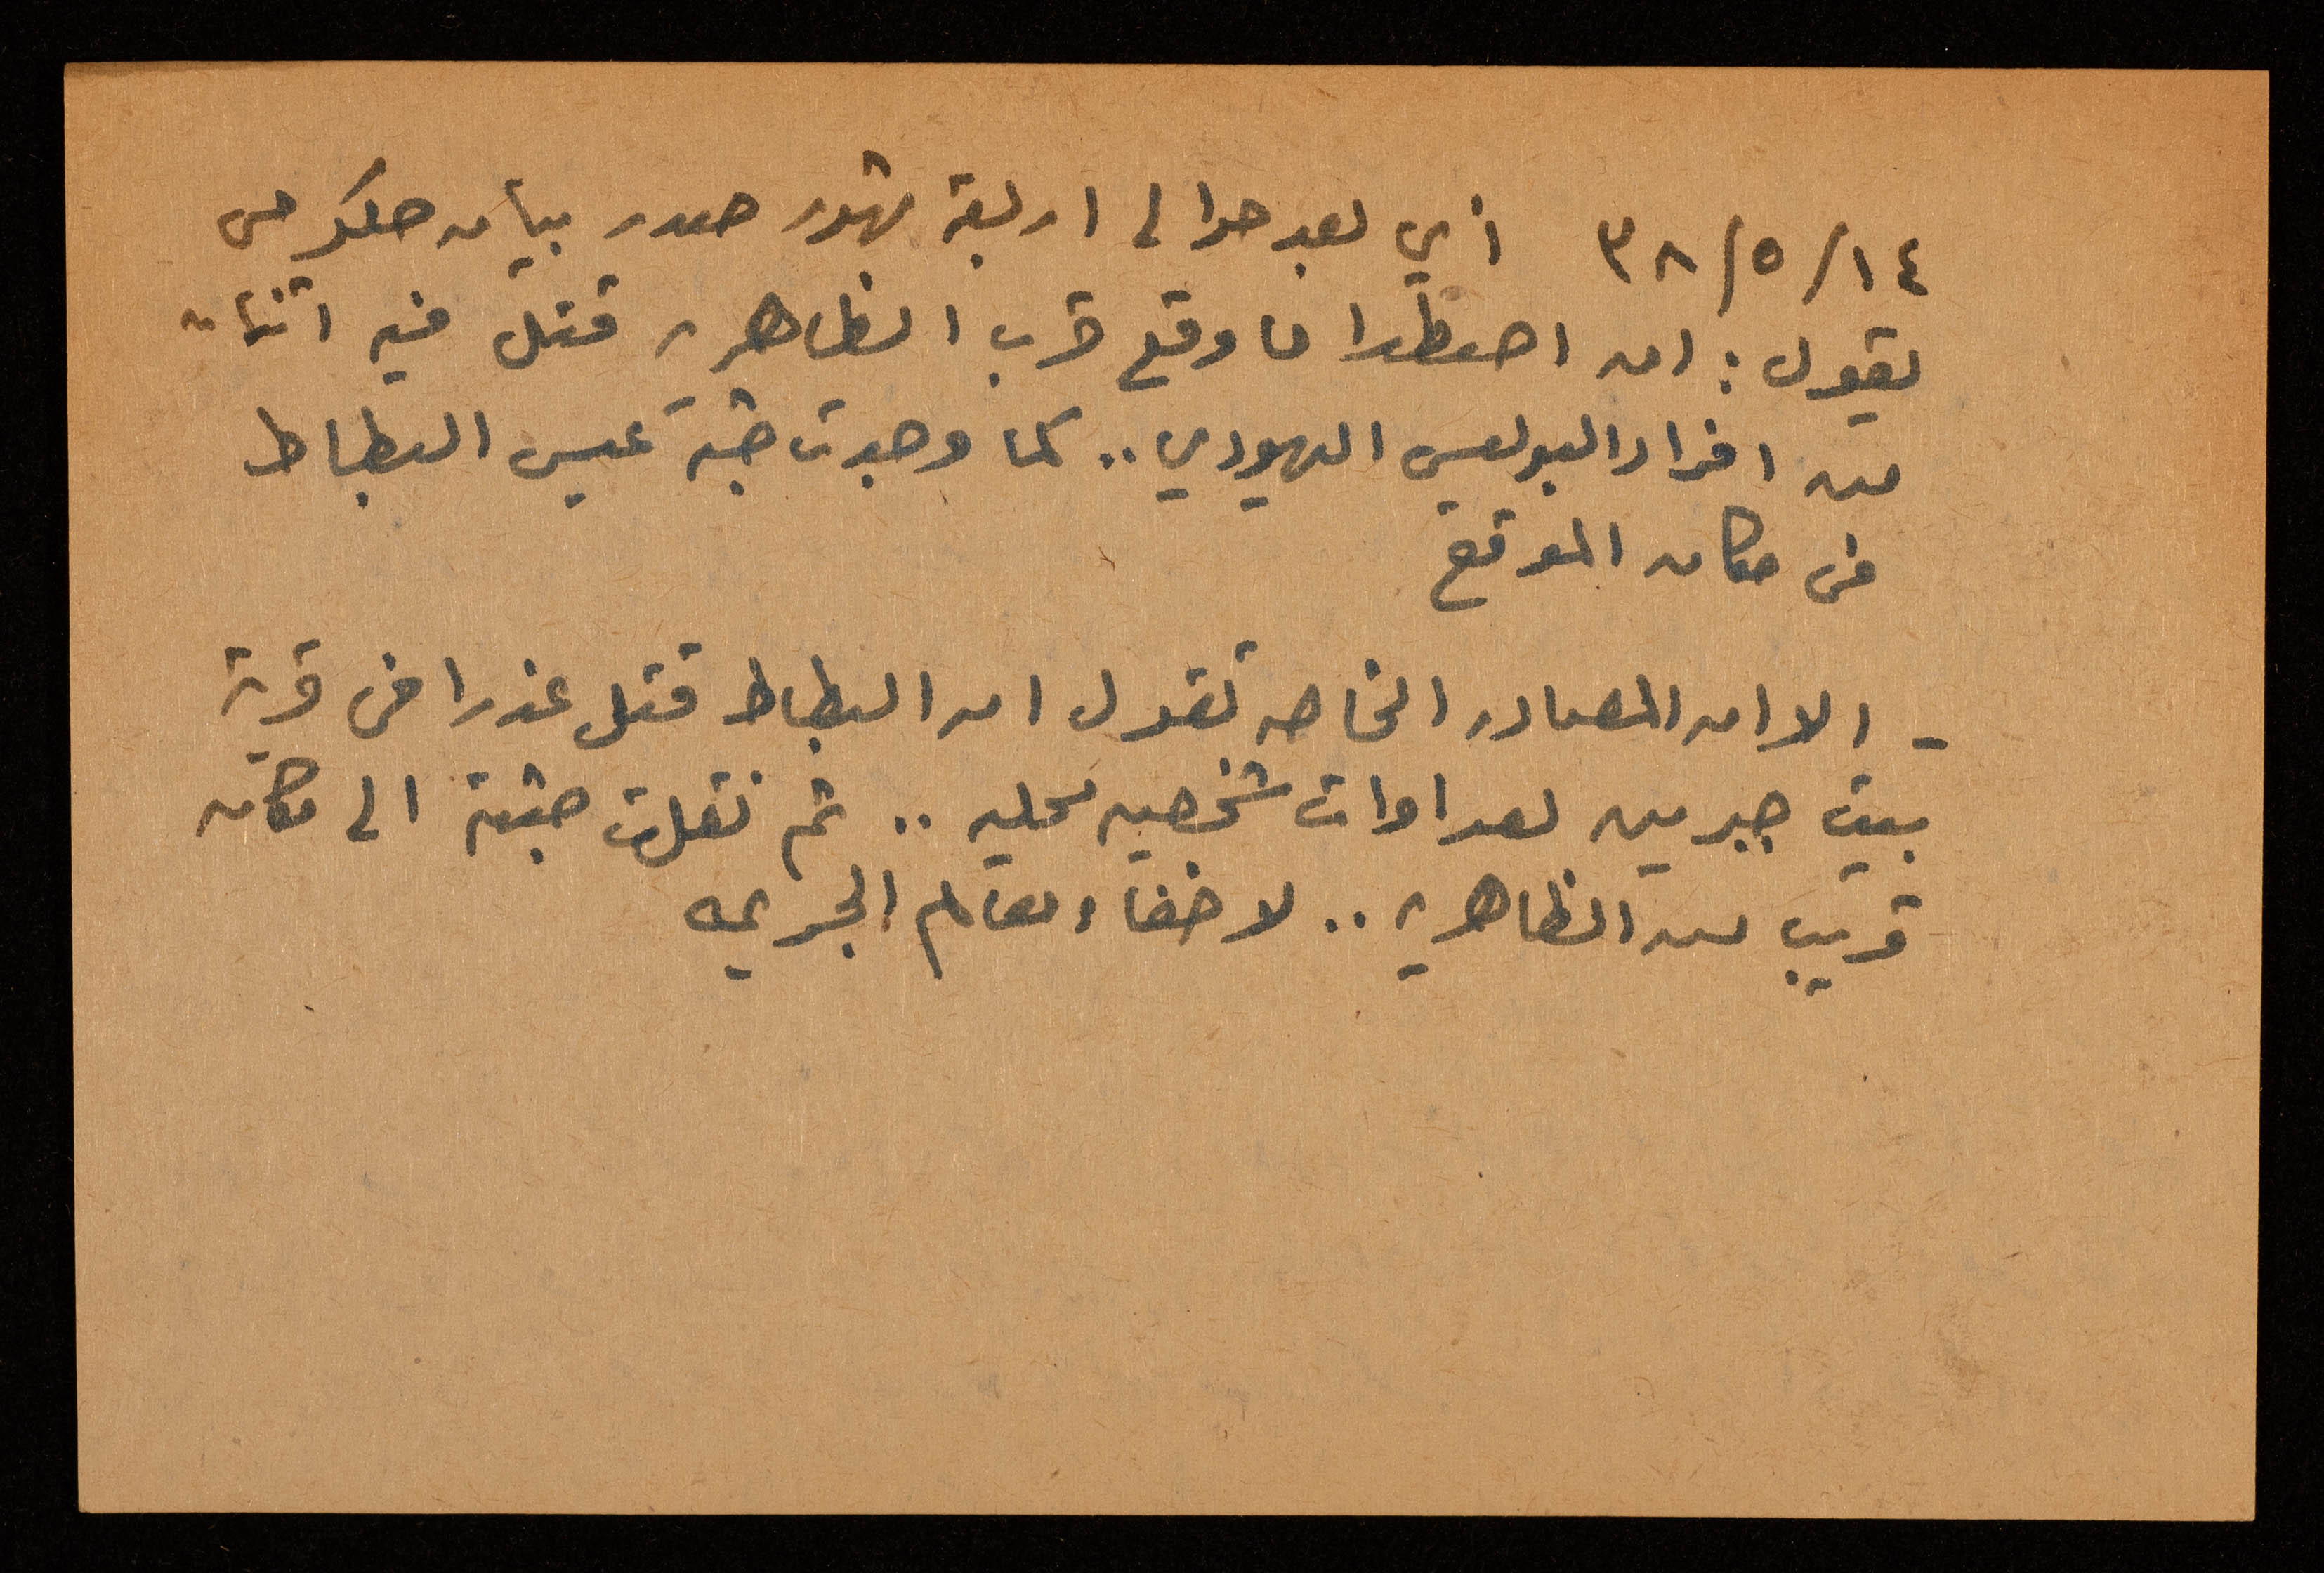 ١٤/٥/٣٨ أي بعد حوالى اربعة شهور صدر بيان حكومى
يقول: ان اصطداما وقع قرب الظاهرية قتل فيه اثنان
من افراد البوليس اليهودي.. كما وجدت جثة عيسى البطاط
فى مكان الموقع
- الا ان المصادر الخاصه تقول ان البطاط قتل غدرا فى قرية
بيت جبرين لعداوات شخصيه محليه.. ثم نقلت جثته الى مكان
قريب من الظاهرية.. لاخفاء معالم الجريمه